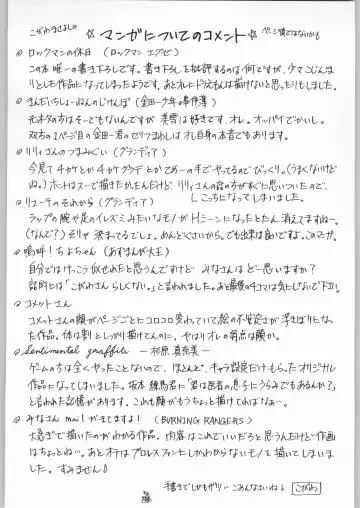 こがわまさよしの
☆マンガについてのコメント☆
ページ順ではないかも
◎ロックマンの休日 (ロックマン エグゼ)
この本唯一の書き下ろしです。書き下ろしと
りとした作品になってしまったようです。あとオレにドリムものは描けないと思ったりもしました。
◎きんだいちしょーねんのじけんぼ (金田一少年の事件簿)
元ネタの方はそーでもないんですが美雪は好きです、オレ。オッパイでかいし。
双方の1ページ目の金田一君のセリフまわしはオレ自身の本音でもあります。
◎リリィさんのつまみぐい (グランディア)
今見てチカチカとかでぜーの手でやってるのでびっくり。(うまくないけど
ね。) ホントはスーで描きたかったんだけど、リリィさんの話の方がすぐに思いついたので、
こっちになってしまいました。
◎リューテのそれから (グランディア)
ラップの腕や足のイレズミみたいなモノがHシーンになったとたん消えてますねー。
(なんで?) そりゃ決まってるでしょ。めんどくさいから。でも出来は良いですよ。このマンガ。
◎嗚呼!ちよちゃん (あずまんが大王)
自分ではけっこう似せれたと思うんですけど みなさんはどー思いますか?
「こがわさんらしくない。」と言われました。あと最後の4コマは気にしないで下さい。
◎コメットさん
コメットさんの顔がページごとにコロコロ変わっていて絵の不安定さが浮きぼりになっ
た作品。体は割としっかり描けてんのに。やはりオレの弱点は顔か。
◎Sentimental graffiti ー杉原真奈美ー
ゲームの方は全くやったことないので、ほとんど、キャラ設定だけもらったオリジナル
作品になってしまいました。坂本 練馬君に「男は医者の息子にうらみでもあるんか?」
と言われた記憶があります。これも顔がもうちょっと描けてればなぁー。
◎みなさん mailがきてますよ! (BURNING RANGERS)
大急ぎで描いたのがわかる作品。内容はこれでいいだろと思うんだけど作画
はちょっとね…。あとオチはプロレスファンにしかわからないモノを描いてしまいまし
た。すみません
手書きでしかもザツい。ごめんなさいね。 こがわ